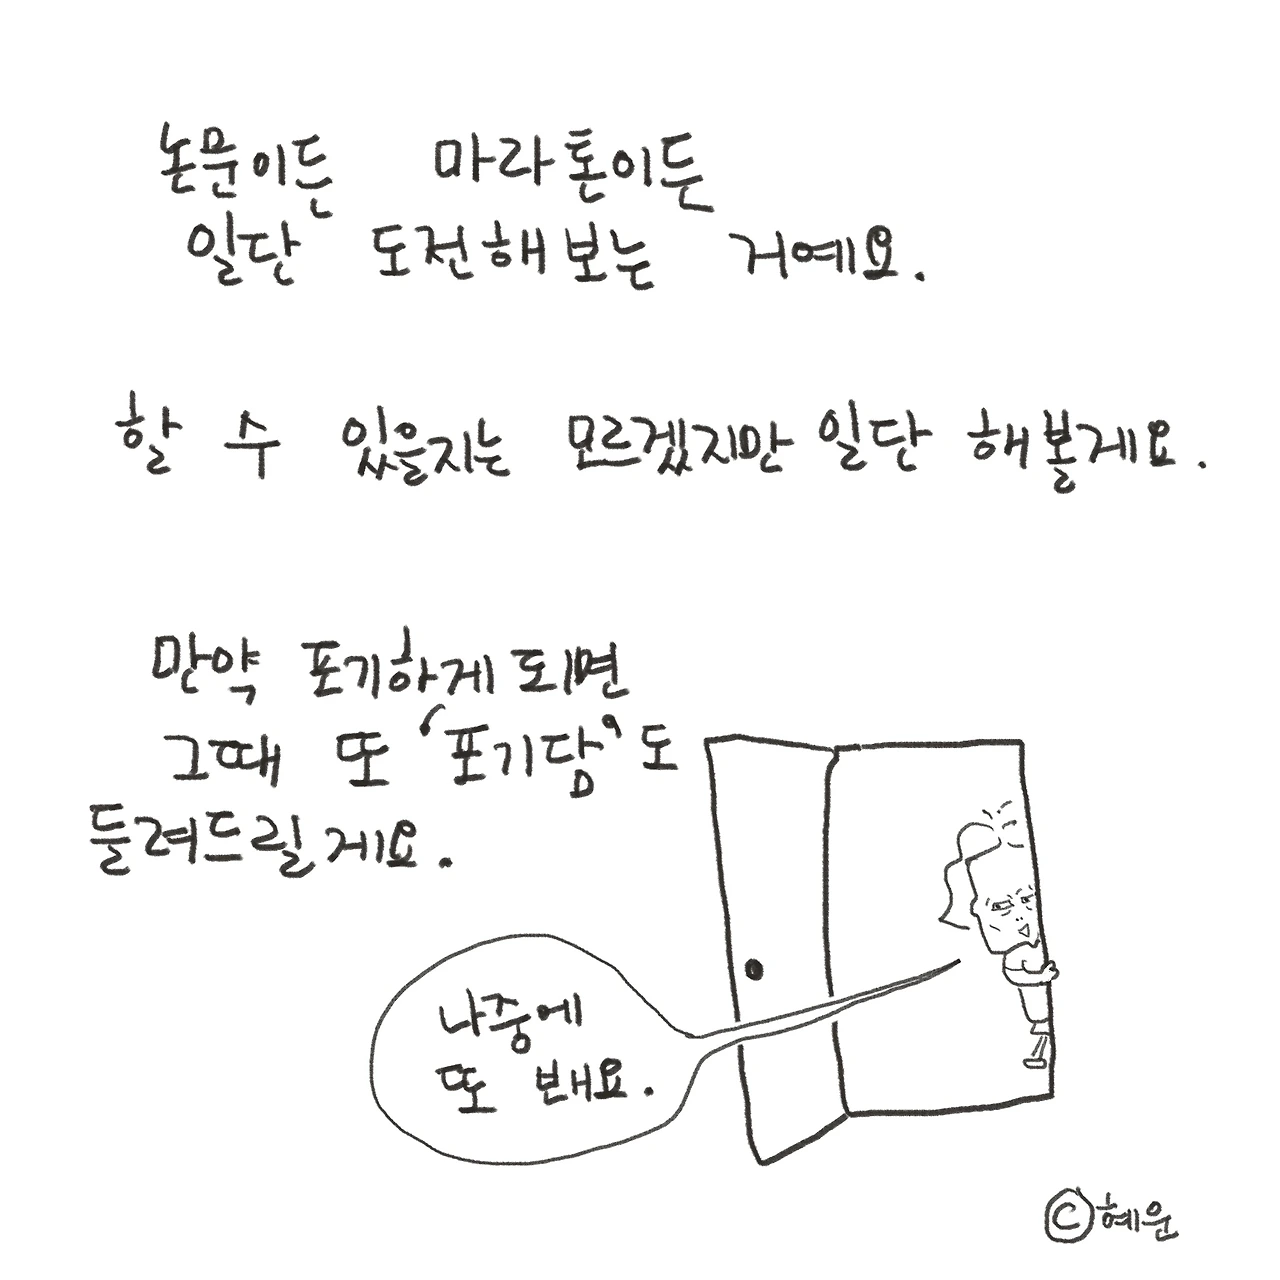 논문이든 마라톤이든
일단 도전해보는 거예요.
할 수 있을지는 모르겠지만 일단 해볼게요.
만약 포기하게 되면
그때 또 '포기담'도
들려드릴게요.
나중에
또 봬요.
©혜운